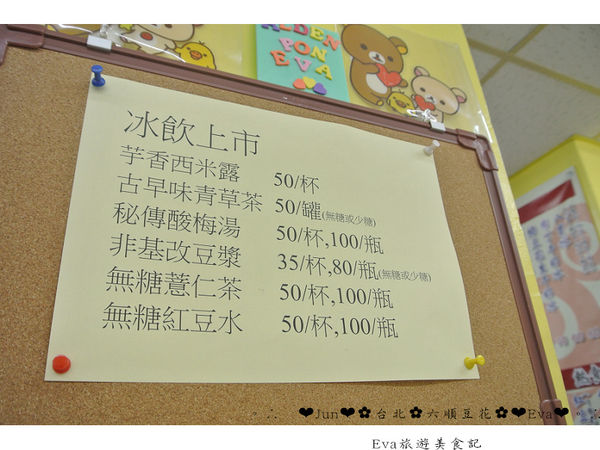 ALDEN
PON
EVA
冰飲上市
芋香西米露 50/杯
古早味青草茶 50/罐(無糖或少糖)
秘傳酸梅湯 50/杯,100/瓶
非基改豆漿 35/杯,80/瓶(無糖或少糖)
無糖薏仁茶 50/杯,100/瓶
無糖紅豆水 50/杯,100/瓶
。∴ ❤Jun❤✿台北✿六順豆花✿❤Eva❤。∴
Eva旅遊美食記